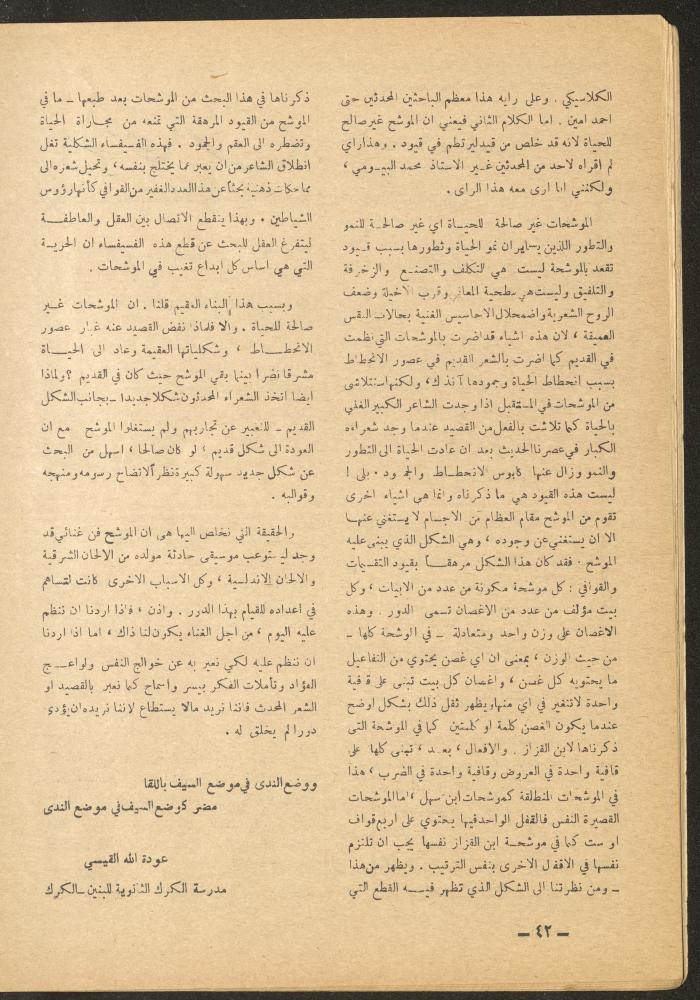 الكلاسيكي . وعلى رايه هذا معظم الباحثين المحدثين حتى
احمد امين . اما الكلام الثاني فيعني ان الموشح غير صالح
للحياة لانه قد خلص من قيد ليرتطم في قيود . وهذا راي
لم اقراه لاحد من المحدثين غير الاستاذ محمد البيومي ،
ولكنني انا ارى معه هذا الراي .
الموشحات غير صالحة للحياة اي غير صالحة للنمو
والتطور اللذين يسايران نمو الحياة وتطورها بسبب قيود
تقعد بالموشحة ليست هي التكلف والتصنع والزخرفة
والتلفيق وليست هي سطحية المعاني وقرب الاخيلة وضعف
الروح الشعرية واضمحلال الاحاسيس الغنية بحالات النفس
العميقة ، لان هذه اشياء قد اضرت بالموشحات التي نظمت
في القديم كما اضرت بالشعر القديم في عصور الانحطاط
بسبب انحطاط الحياة وجمودها آنذاك ، ولكنها ستتلاشى
من الموشحات في المستقبل اذا وجدت الشاعر الكبير الغني
بالحياة كما تلاشت بالفعل من القصيد عندما وجد شعراءه
الكبار في عصرنا الحديث بعد ان عادت الحياة الى التطور
والنمو وزال عنها كابوس الانحطاط والجمود . بلى !
ليست هذه القيود هي ما ذكرناه وانما هي اشياء اخرى
تقوم من الموشح مقام العظام من الاجسام لا يستغني عنها
الا ان يستغني عن وجوده ، وهي الشكل الذي يبنى عليه
الموشح . فقد كان هذا الشكل مرهقاً بقيود التقسيمات
والقوافي : كل موشحة مكونة من عدد من الابيات ، وكل
بيت مؤلف من عدد من الاغصان تسمى الدور . وهذه
الاغصان على وزن واحد ومتعادلة ــ في الوشحة كلها ــ
من حيث الوزن ، بمعنى ان اي غصن يحتوي من التفاعيل
ما يحتويه كل غصن ، واغصان كل بيت تبنى على قافية
واحدة لا تتغير في اي منها ويظهر ثقل ذلك بشكل اوضح
عندما يكون الغصن كلمة او كلمتين كما في الموشحة التي
ذكرناها لابن القزاز . والاقفال ، بعد ، تبنى كلها على
قافية واحدة في العروض وقافية واحدة في الضرب ، هذا
في الموشحات المنطلقة كموشحات ابن سهل ، اما الموشحات
القصيرة النفس فالقفل الواحد فيها يحتوي على اربع قواف
او ست كما في موشحة ابن القزاز نفسها يجب ان تلتزم
نفسها في الاقفال الاخرى بنفس الترتيب . ويظهر من هذا
ــ ومن نظرتنا الى الشكل الذي تظهر فيه القطع التي
ذكرناها في هذا البحث من الموشحات بعد طبعها ــ ما في
الموشح من القيود المرهقة التي تمنعه من مجاراة الحياة
وتضطره الى العقم والجمود . فهذه الفسيفساء الشكلية تغل
انطلاق الشاعر من ان يعبر عما يختلج بنفسه ، وتحيل شعره الى
مماحكات ذهنية بحثاً عن هذا العدد الغفير من القوافي كأنها رؤوس
الشياطين . وبهذا ينقطع الاتصال بين العقل والعاطفة
ليتفرغ العقل للبحث عن قطع هذه الفسيفساء ان الحرية
التي هي اساس كل ابداع تغيب في الموشحات .
وبسبب هذا البناء العقيم قلنا . ان الموشحات غير
صالحة للحياة . والا فلماذا نفض القصيد عنه غبار عصور
الانحطاط ، وشكلياتها العقيمة وعاد الى الحياة
مشرقا نضرا بينما بقي الموشح حيث كان في القديم ؟ ولماذا
ايضا اتخذ الشعراء المحدثون شكلا جديدا ــ بجانب الشكل
القديم ــ للتعبير عن تجاربهم ولم يستغلوا الموشح مع ان
العودة الى شكل قديم ، لو كان صالحا ، اسهل من البحث
عن شكل جديد سهولة كبيرة نظراً لاتضاح رسومه ومنهجه
وقوالبه .
والحقيقة التي نخلص اليها هي ان الموشح فن غنائي قد
وجد ليستوعب موسيقى حادثة مولده من الالحان الشرقية
والالحان الاندلسية ، وكل الاسباب الاخرى كانت لتساهم
في اعداده للقيام بهذا الدور . واذن ، فاذا اردنا ان ننظم
عليه اليوم ، من اجل الغناء يكون لنا ذاك ، اما اذا اردنا
ان ننظم عليه لكي نعبر به عن خوالج النفس ولواعج
الفؤاد وتأملات الفكر بيسر واسماح كما نعبر بالقصيد او
الشعر المحدث فاننا نريد مالا يستطاع لاننا نريده ان يؤدي
دورا لم يخلق له .
ووضع الندى في موضع السيف باللقا
مضر كوضع السيف في موضع الندى
عودة الله القيسي
مدرسة الكرك الثانوية للبنين ــ الكرك
ــ ٤٢ ــ